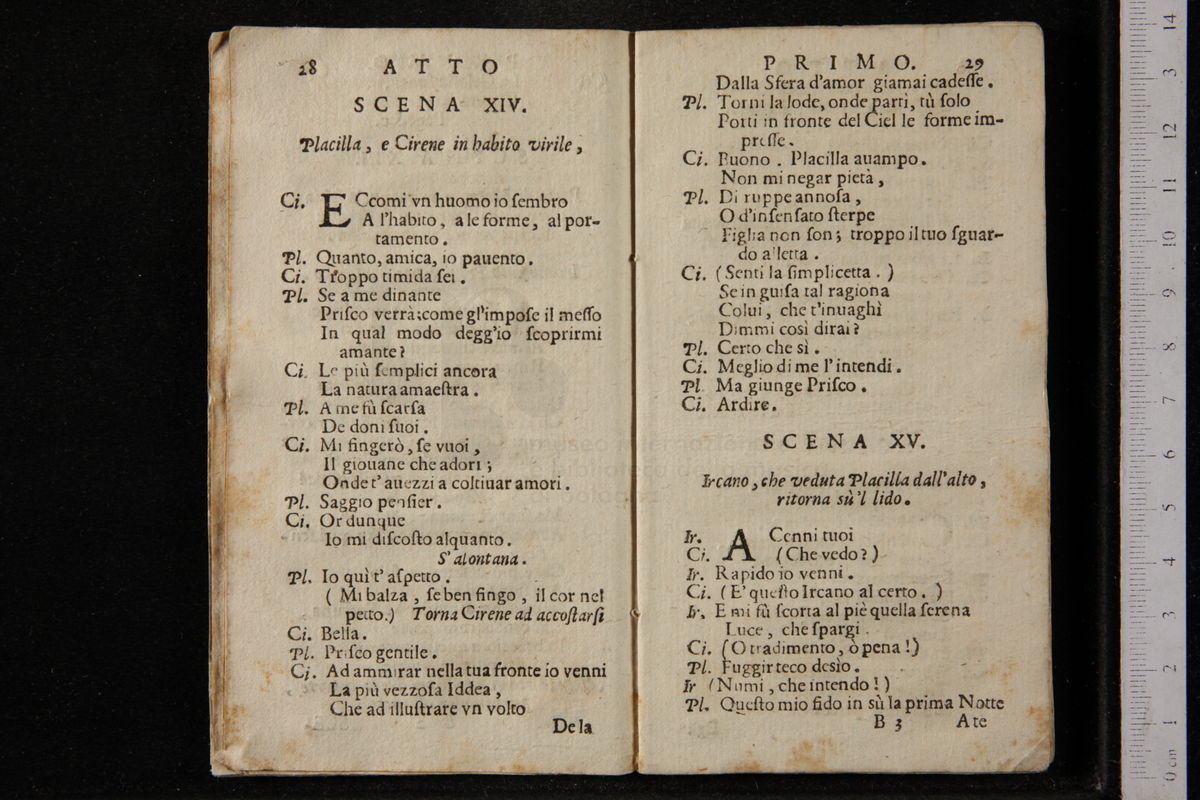 28 ATTO
SCENA XIV.
Placilla, e Cirene in habito virile,
Ci. ECcomi vn huomo io ſembro
A l'habito, a le forme, al por-
tamento.
Pl. Quanto, amica, io pauento.
Ci. Troppo timida ſei.
Pl. Se a me dinante
Priſco verrà: come gl'impoſe il meſſo
In qual modo degg'io ſcoprirmi
amante?
Ci. Le più ſemplici ancora
La natura amaeſtra.
Pl. A me fù ſcarſa
De doni ſuoi.
Ci. Mi fingerò, ſe vuoi,
Il giouane che adori;
Onde t' auezzi a coltiuar amori.
Pl. Saggio penſier.
Ci. Or dunque
Io mi diſcoſto alquanto.
S' alontana.
Pl. Io quì t' aſpetto.
( Mi balza, ſe ben fingo, il cor nel
petto.) Torna Cirene ad accoſtarſi
Ci. Bella.
Pl. Priſco gentile.
Ci. Ad ammirar nella tua fronte io venni
La più vezzoſa Iddea,
Che ad illuſtrare vn volto
De la
PRIMO. 29
Dalla Sfera d'amor giamai cadeſſe.
Pl. Torni la lode, onde partì, tù ſolo
Porti in fronte del Ciel le forme im-
preſſe.
Ci. Buono. Placilla auampo.
Non mi negar pietà,
Pl. Di ruppe annoſa,
O d'inſenſato ſterpe
Figlia non ſon; troppo il tuo ſguar-
do alletta.
Ci. (Senti la ſimplicetta.)
Se in guiſa tal ragiona
Colui, che t'inuaghì
Dimmi così dirai?
Pl. Certo che sì.
Ci. Meglio di me l'intendi.
Pl. Ma giunge Priſco.
Ci. Ardire.
SCENA XV.
Ircano, che veduta Placilla dall'alto,
ritorna sù'l lido.
Ir. A Cenni tuoi
Ci. (Che vedo?)
Ir. Rapido io venni.
Ci. (E' queſto Ircano al certo.)
Ir. E mi fù ſcorta al piè quella ſerena
Luce, che ſpargi.
Ci. (O tradimento, ò pena!)
Pl. Fuggir teco desìo.
Ir (Numi, che intendo!)
Pl. Queſto mio fido in sù la prima Notte
B 3 A te
0 cm 1 2 3 4 5 6 7 8 9 10 11 12 3 14